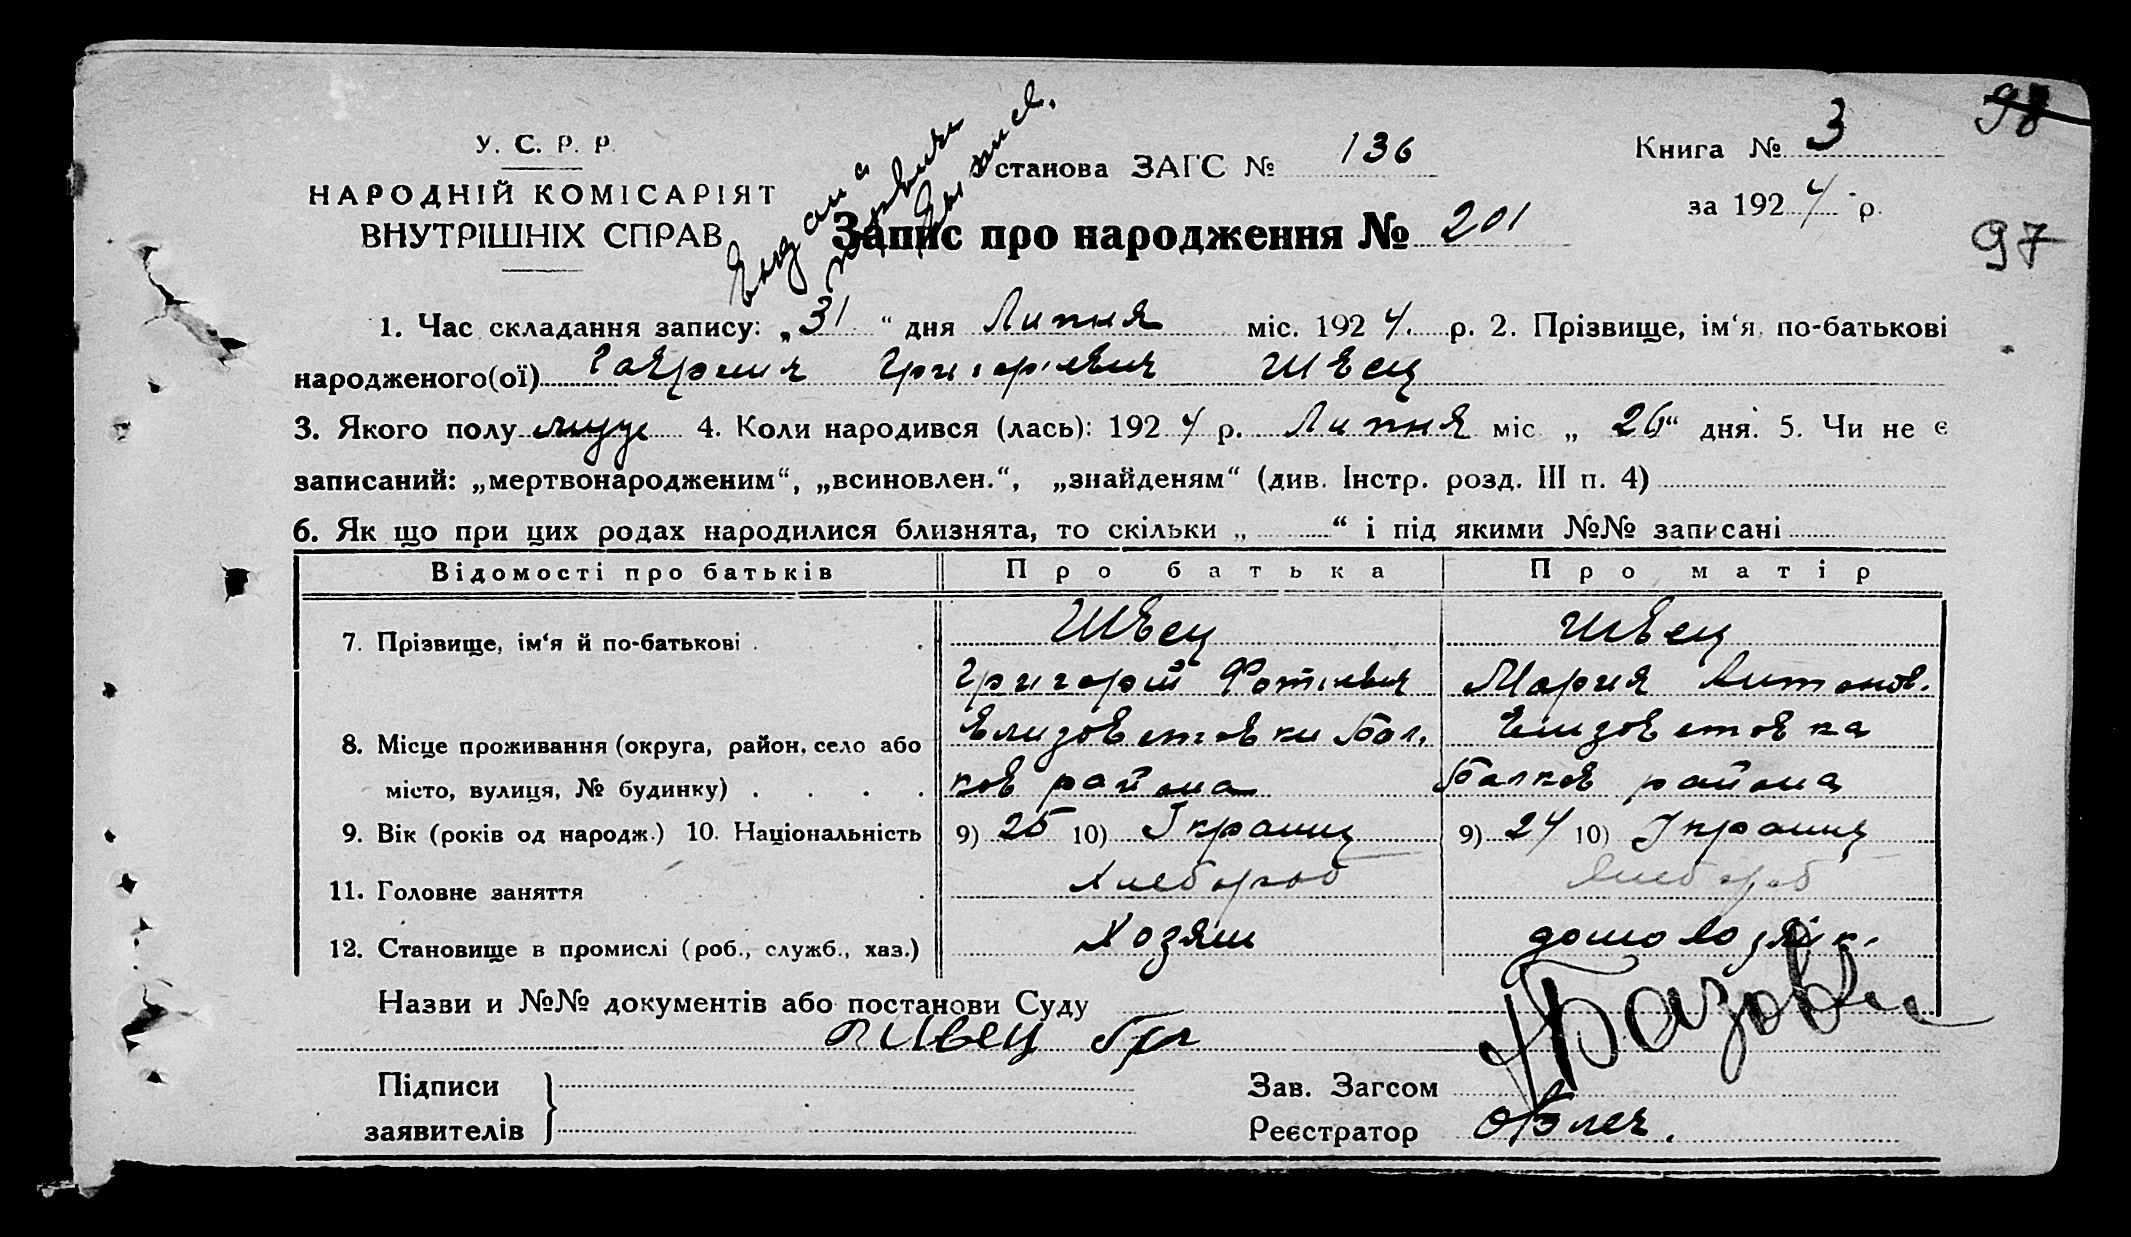 98
У. С. Р. Р.
НАРОДНІЙ КОМІСАРІЯТ
ВНУТРІШНІХ СПРАВ
Установа ЗАГС № 136
Книга № 3
за 1924 р.
97
Запис про народження № 201
1. Час складання запису: „31“ дня Липня міс. 1924 р. 2. Прізвище, ім‘я, по-батькові
народженого(ої) Григорієвич Швец
3. Якого полу 4. Коли народився (лась): 1924 р. Липня міс „26“ дня. 5. Чи не є
записаний: „мертвонародженим“, „всиновлен.“, „знайденям“ (див. Інстр. розд. III п. 4)
6. Як що при цих родах народилися близнята, то скільки „ “ і під якими №№ записані
Відомості про батьків Про батька Про матір
7. Прізвище, ім‘я й по-батькові . . Швец Швец
Григорій Фотіевич Мария Антонов.
8. Місце проживання (округа, район, село або Елизоветовки Бал. Елизоветовка
місто, вулиця, № будинку) . . . . ков района Балков района
9. Вік (років од народж.) 10. Національність 9) 25 10) Украинц 9) 24 10) Украинц
11. Головне заняття . Хлебороб Хлебороб
12. Становище в промислі (роб., служб., хаз.) Хозяин домохозяйк.
Назви и №№ документів або постанови Суду
Швец Гр
Підписи
заявителів
Зав. Загсом
Реєстратор